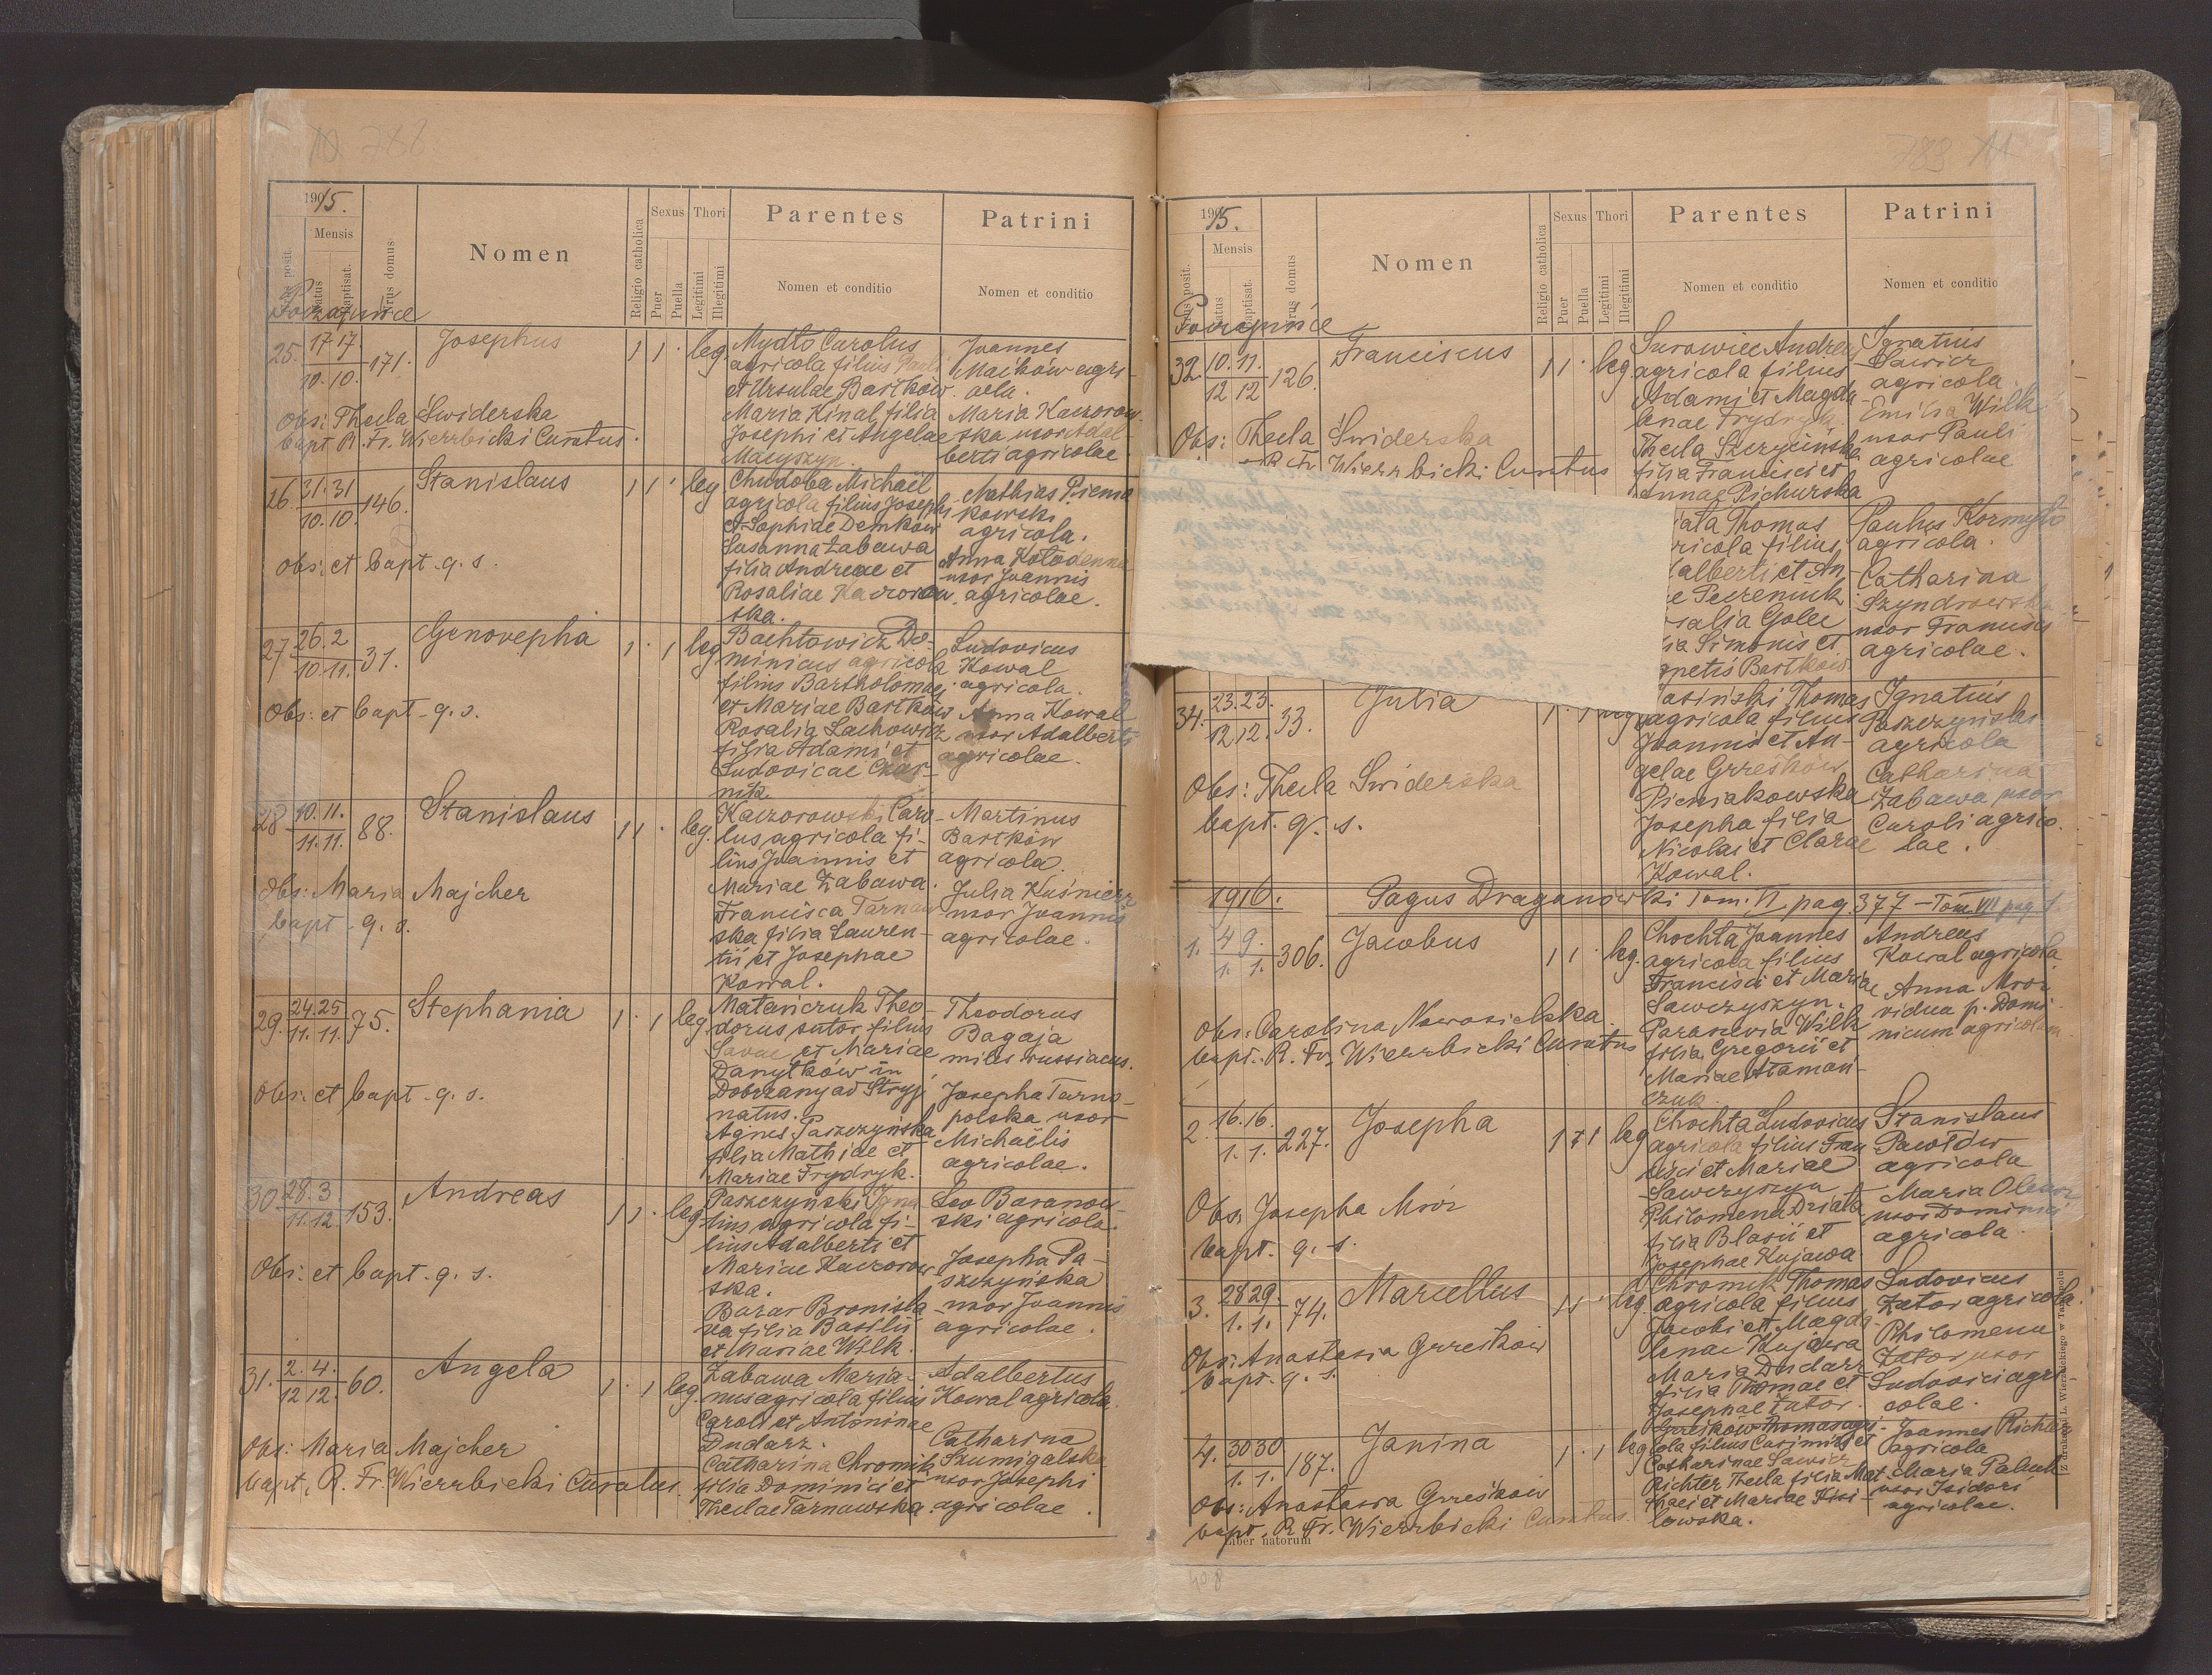 10. 788
1915.
Mensis
Nrus posit.
natus
baptisat.
Nrus domus
Nomen
Religio catholica
Sexus
Puer
Puella
Thori
Legitimi
Illegitimi
Parentes
Nomen et conditio
Patrini
Nomen et conditio
25. 17 17. 10. 10. 171.
Josephus
1 1 · leg.
Mydło Carolus
agricola filius Pauli
et Ursulae Bartków.
Maria Kinal filia
Josephi et Angelae
Macyszyn.
Joannes
Maćków agri-
cola.
Maria Kaczorow-
ska uxor Adal-
berti agricolae.
Obs: Thecla Swiderska
bapt. R. Fr. Wierzbicki Curatus.
26. 31. 31 10. 10. 146.
Stanislaus
1 1 · leg
Chudoba Michaël
agricola filius Josephi
et Sophiae Demków
Susanna Zabawa
filia Andreae et
Rosaliae Kaczorow-
ska.
Mathias Pienia-
kowski
agricola.
Anna
uxor Joannis
agricolae.
Obs: et bapt. q. s.
27 26. 2 10. 11. 31.
Genovepha
1 · 1 leg
Bachtowicz Do-
minicus agricola
filius Bartholomaei
et Mariae Bartków
Rosalia Lachowicz
filia Adami et
Ludovicae
Ludovicus
Kowal
agricola.
Anna Kowal
uxor Adalberti
agricolae.
Obs: et bapt. q. s.
28 10. 11. 11. 11. 88.
Stanislaus
1 1 · leg.
Kaczorowski Caro-
lus agricola fi-
lius Joannis et
Mariae Zabawa.
Francisca Tarnaw-
ska filia Lauren-
tii et Josephae
Kowal.
Martinus
Bartków
agricola.
Julia Kuśnierz
uxor Joannis
agricolae.
Obs: Maria Majcher
bapt. q. s.
29. 24. 25 11. 11. 75.
Stephania
1 · 1 leg
Matańczuk Theo-
dorus sutor filius
Savae et Mariae
Danytków in
Dobrzany ad Stryj
natus.
Agnes Paszczyńska
filia Mathiae et
Mariae Frydryk.
Theodorus
Bagaja
miles russiacus.
Josepha Tarno-
polska uxor
Michaëlis
agricolae.
Obs: et bapt. q. s.
30 28. 3 11. 12 153.
Andreas
1 1 · leg
Paszczyński Igna-
tius agricola fi-
lius Adalberti et
Mariae Kaczorow-
ska.
Bazar Bronisła-
va filia Basilii
et Mariae Wilk.
Leo Baranow-
ski agricola.
Josepha Pa-
szczyńska
uxor Joannis
agricolae.
Obs: et bapt. q. s.
31. 2. 4. 12 12. 60.
Angela
1 · 1 leg.
Zabawa Maria-
nus agricola filius
Caroli et Antoninae
Dudarz.
Catharina Chromik
filia Dominici et
Theclae Tarnawska.
Adalbertus
Kowal agricola.
Catharina
Szumigalska
uxor Josephi
agricolae.
Obs: Maria Majcher
bapt. R. Fr. Wierzbicki Curatus.
789 11
1915.
Mensis
Nrus posit.
natus
baptisat.
Nrus domus
Nomen
Religio catholica
Sexus
Puer
Puella
Thori
Legitimi
Illegitimi
Parentes
Nomen et conditio
Patrini
Nomen et conditio
32. 10. 11. 12 12 126.
Franciscus
1 1 · leg
Surowiec Andreas
agricola filius
Adami et Magda-
lenae Frydryk
Thecla Szczycińska
filia Francisci et
Annae Pichurska
Ignatius
Sawicz
agricola.
Emilia Wilk
uxor Pauli
agricolae
Obs: Thecla Swiderska
R. Fr. Wierzbicki Curatus
Thomas
ricola filius
alberti et An-
Golec
ia Simonis et
gnetis Bartków
Paulus
agricola.
Catharina
uxor Francisci
agricolae.
34. 23. 23. 12 12. 33.
Julia
1 · 1 leg
Jasiński Thomas
agricola filius
Joannis et An-
gelae Grześków
Pieniakowska
Josepha filia
Nicolai et Clarae
Kowal.
Ignatius
Paszczyński
agricola
Catharina
Zabawa uxor
Caroli agrico-
lae.
Obs: Thecla Swiderska
bapt. q. s.
1916. Pagus Draganówki Tom. VI pag. 377 – Tom. VII pag. 1.
1. 4 9. 1. 1. 306.
Jacobus
1 1 · leg.
Chochta Joannes
agricola filius
Francisci et Mariae
Sawczyszyn.
Paraszevia Wilk
filia Gregorii et
Mariae Ataman-
czuk
Andreas
Kowal agricola
Anna Mroz
vidua p. Domi-
nicum agricolam.
Obs: Carolina Nowosielska
bapt. R. Fr. Wierzbicki Curatus
2. 16. 16. 1. 1. 227.
Josepha
1 · 1 leg
Chochta Ludovicus
agricola filius Fran-
cisci et Mariae
Sawczyszyn
Philomena Działa
filia Blasii et
Josephae Kujawa.
Stanislaus
Pawłów
agricola
Maria
uxor Dominici
agricola.
Obs. Josepha Mróz
bapt. q. s.
3. 28 29. 1. 1. 74.
Marcellus
1 1 · leg
Chromik Thomas
agricola filius
Jacobi et Magda-
lenae Kujawa
Maria Dudarz
filia Thomae et
Josephae Zator.
Ludovicus
Zator agricola.
Philomena
Zator uxor
Ludovici agri-
colae.
Obs: Anastasia Grześków
bapt. q. s.
4. 30 30 1. 1. 187.
Janina
1 · 1 leg
Grześków Thomas agri-
cola filius Casimiri et
Catharinae Sawicz
Richter Thecla filia Mat-
thaei et Mariae Kisi-
lowska.
Joannes Richter
agricola
Maria Paluk
uxor Isidori
agricolae.
Obs: Anastasia Grześków
bapt. R. Fr. Wierzbicki Curatus.
Liber natorum
408
Z drukarni L. Wierzbickiego w Tarnopolu